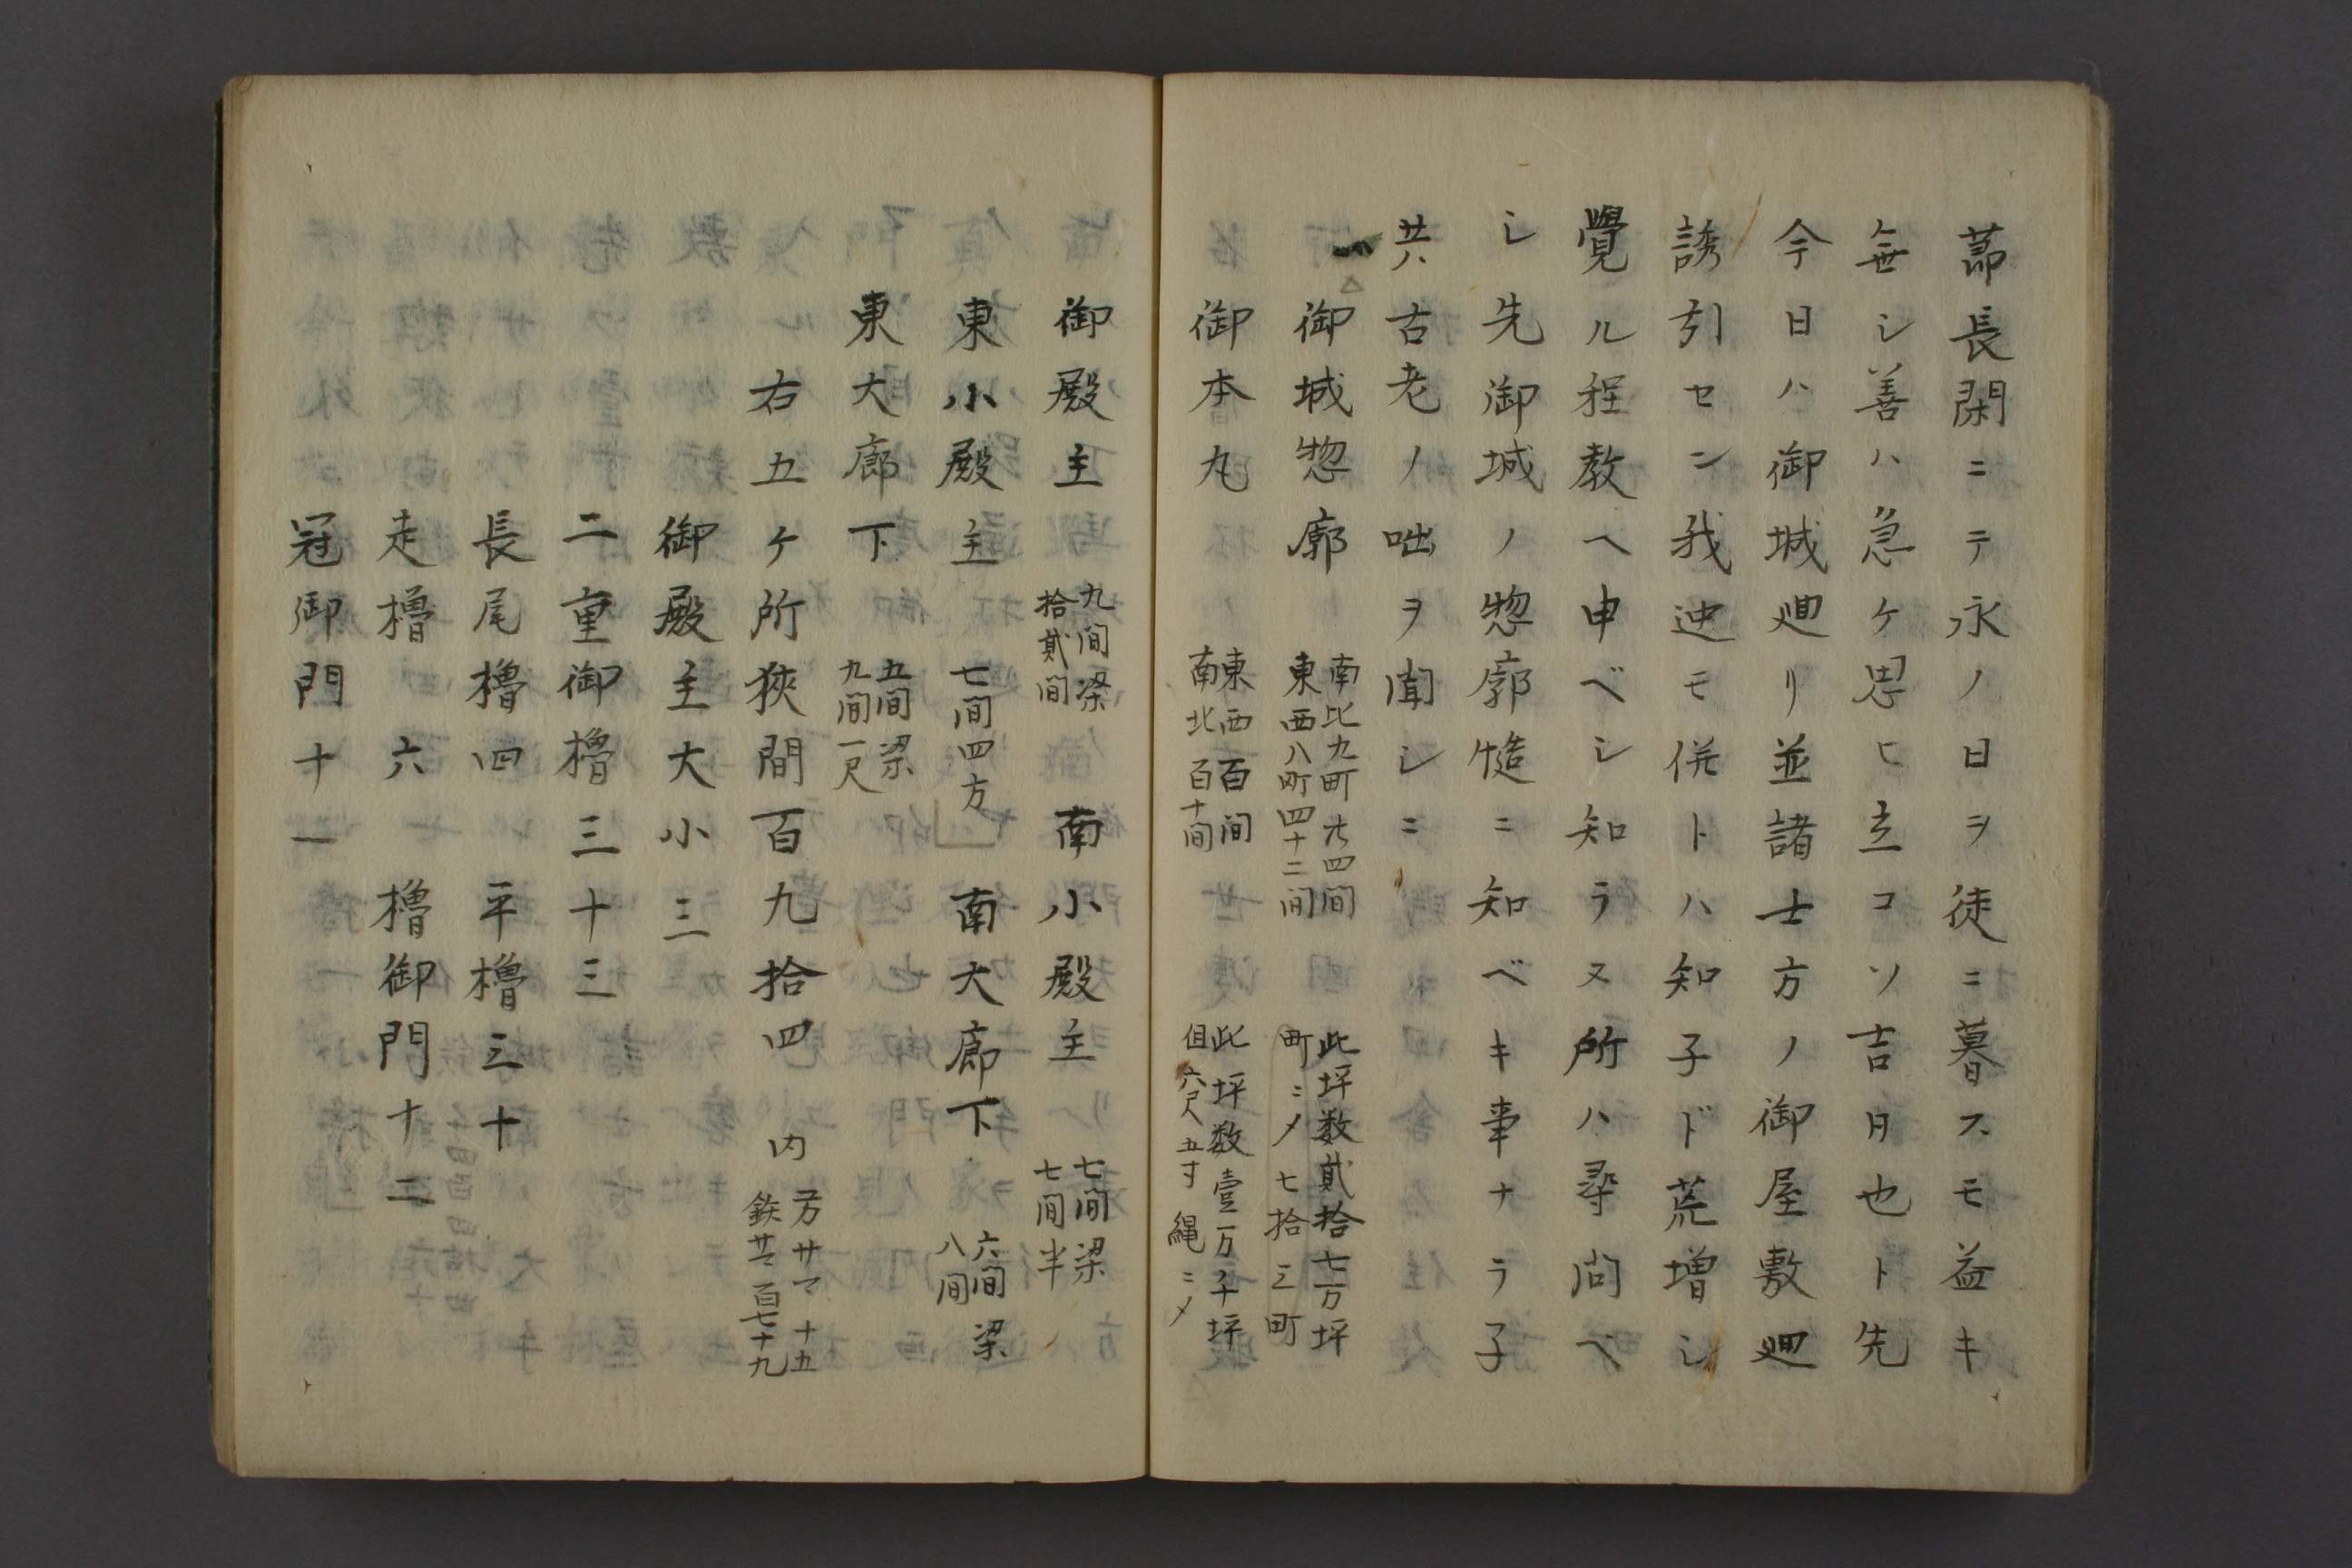 節長閑ニテ永ノ日ヲ徒ニ暮スモ益キ
無シ善ハ急ケ思ヒ立コソ吉日也ト先
今日ハ御城廻リ並諸士方ノ御屋敷廻
誘引セン我迚モ併トハ知子ド荒増シ
覺ル程教ヘ申ベシ知ラヌ所ハ尋問ベ
シ先御城ノ惣廓慥ニ知ベキ事ナラ子
共古老ノ咄ヲ聞シニ
御城惣廓
南北九町廿四間
東西八町四十二間
此坪数貳拾七万坪
町ニ〆七拾三町
御本丸
東西百間
南北百十間
此坪数壹万千坪
但六尺五寸縄ニ〆
御殿主
九間梁
拾貳間
南小殿主
七間梁
七間半
東小殿主
七間四方
南大廊下
六間梁
八間
東大廊下
五間梁
九間一尺
右五ヶ所狹間百九拾四
内
方サマ十五
鉄サマ百七十九
御殿主大小三
二重御櫓三十三
長尾櫓四 平櫓三十
走櫓 六 櫓御門十二
冠御門十一